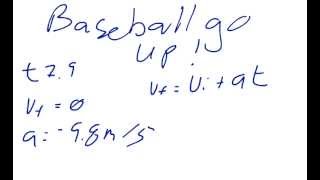 Baseball go
up
t 2.9
Vf = 0
a = -9.8 m/s
Vf = Vi + at